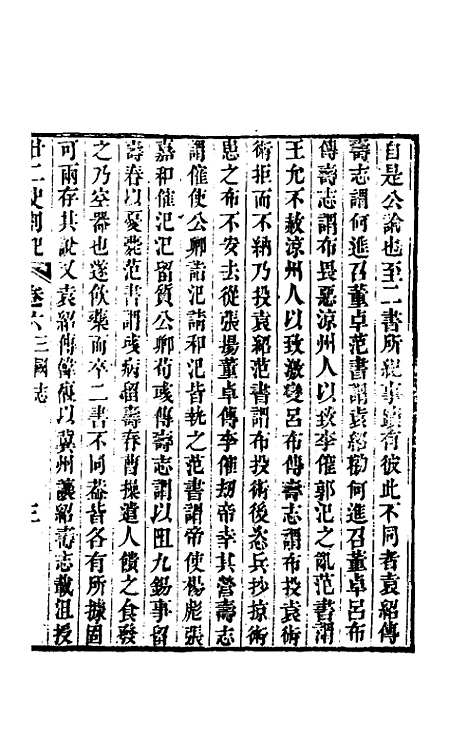 自是公論也至二書所紀事蹟有彼此不同者袁紹傳
壽志謂何進召董卓范書謂袁紹勸何進召董卓呂布
傳壽志謂布畏惡涼州人以致李傕郭汜之亂范書謂
王允不赦涼州人以致激變呂布傳壽志謂布投袁術
術拒而不納乃投袁紹范書謂布投術後恣兵抄掠術
患之布不安去從張揚董卓傳李傕刼帝幸其營壽志
謂傕使公卿詣汜請和汜皆執之范書謂帝使楊彪張
嘉和傕汜汜留質公卿荀彧傳壽志謂以阻九錫事留
壽春以憂薨范書謂彧病留壽春曹操遣人饋之食發
之乃空器也遂飲藥而卒二書不同葢皆各有所據固
可兩存其說又袁紹傳韓馥以冀州讓紹壽志載沮授
廿二史劄記 卷六 三國志 三